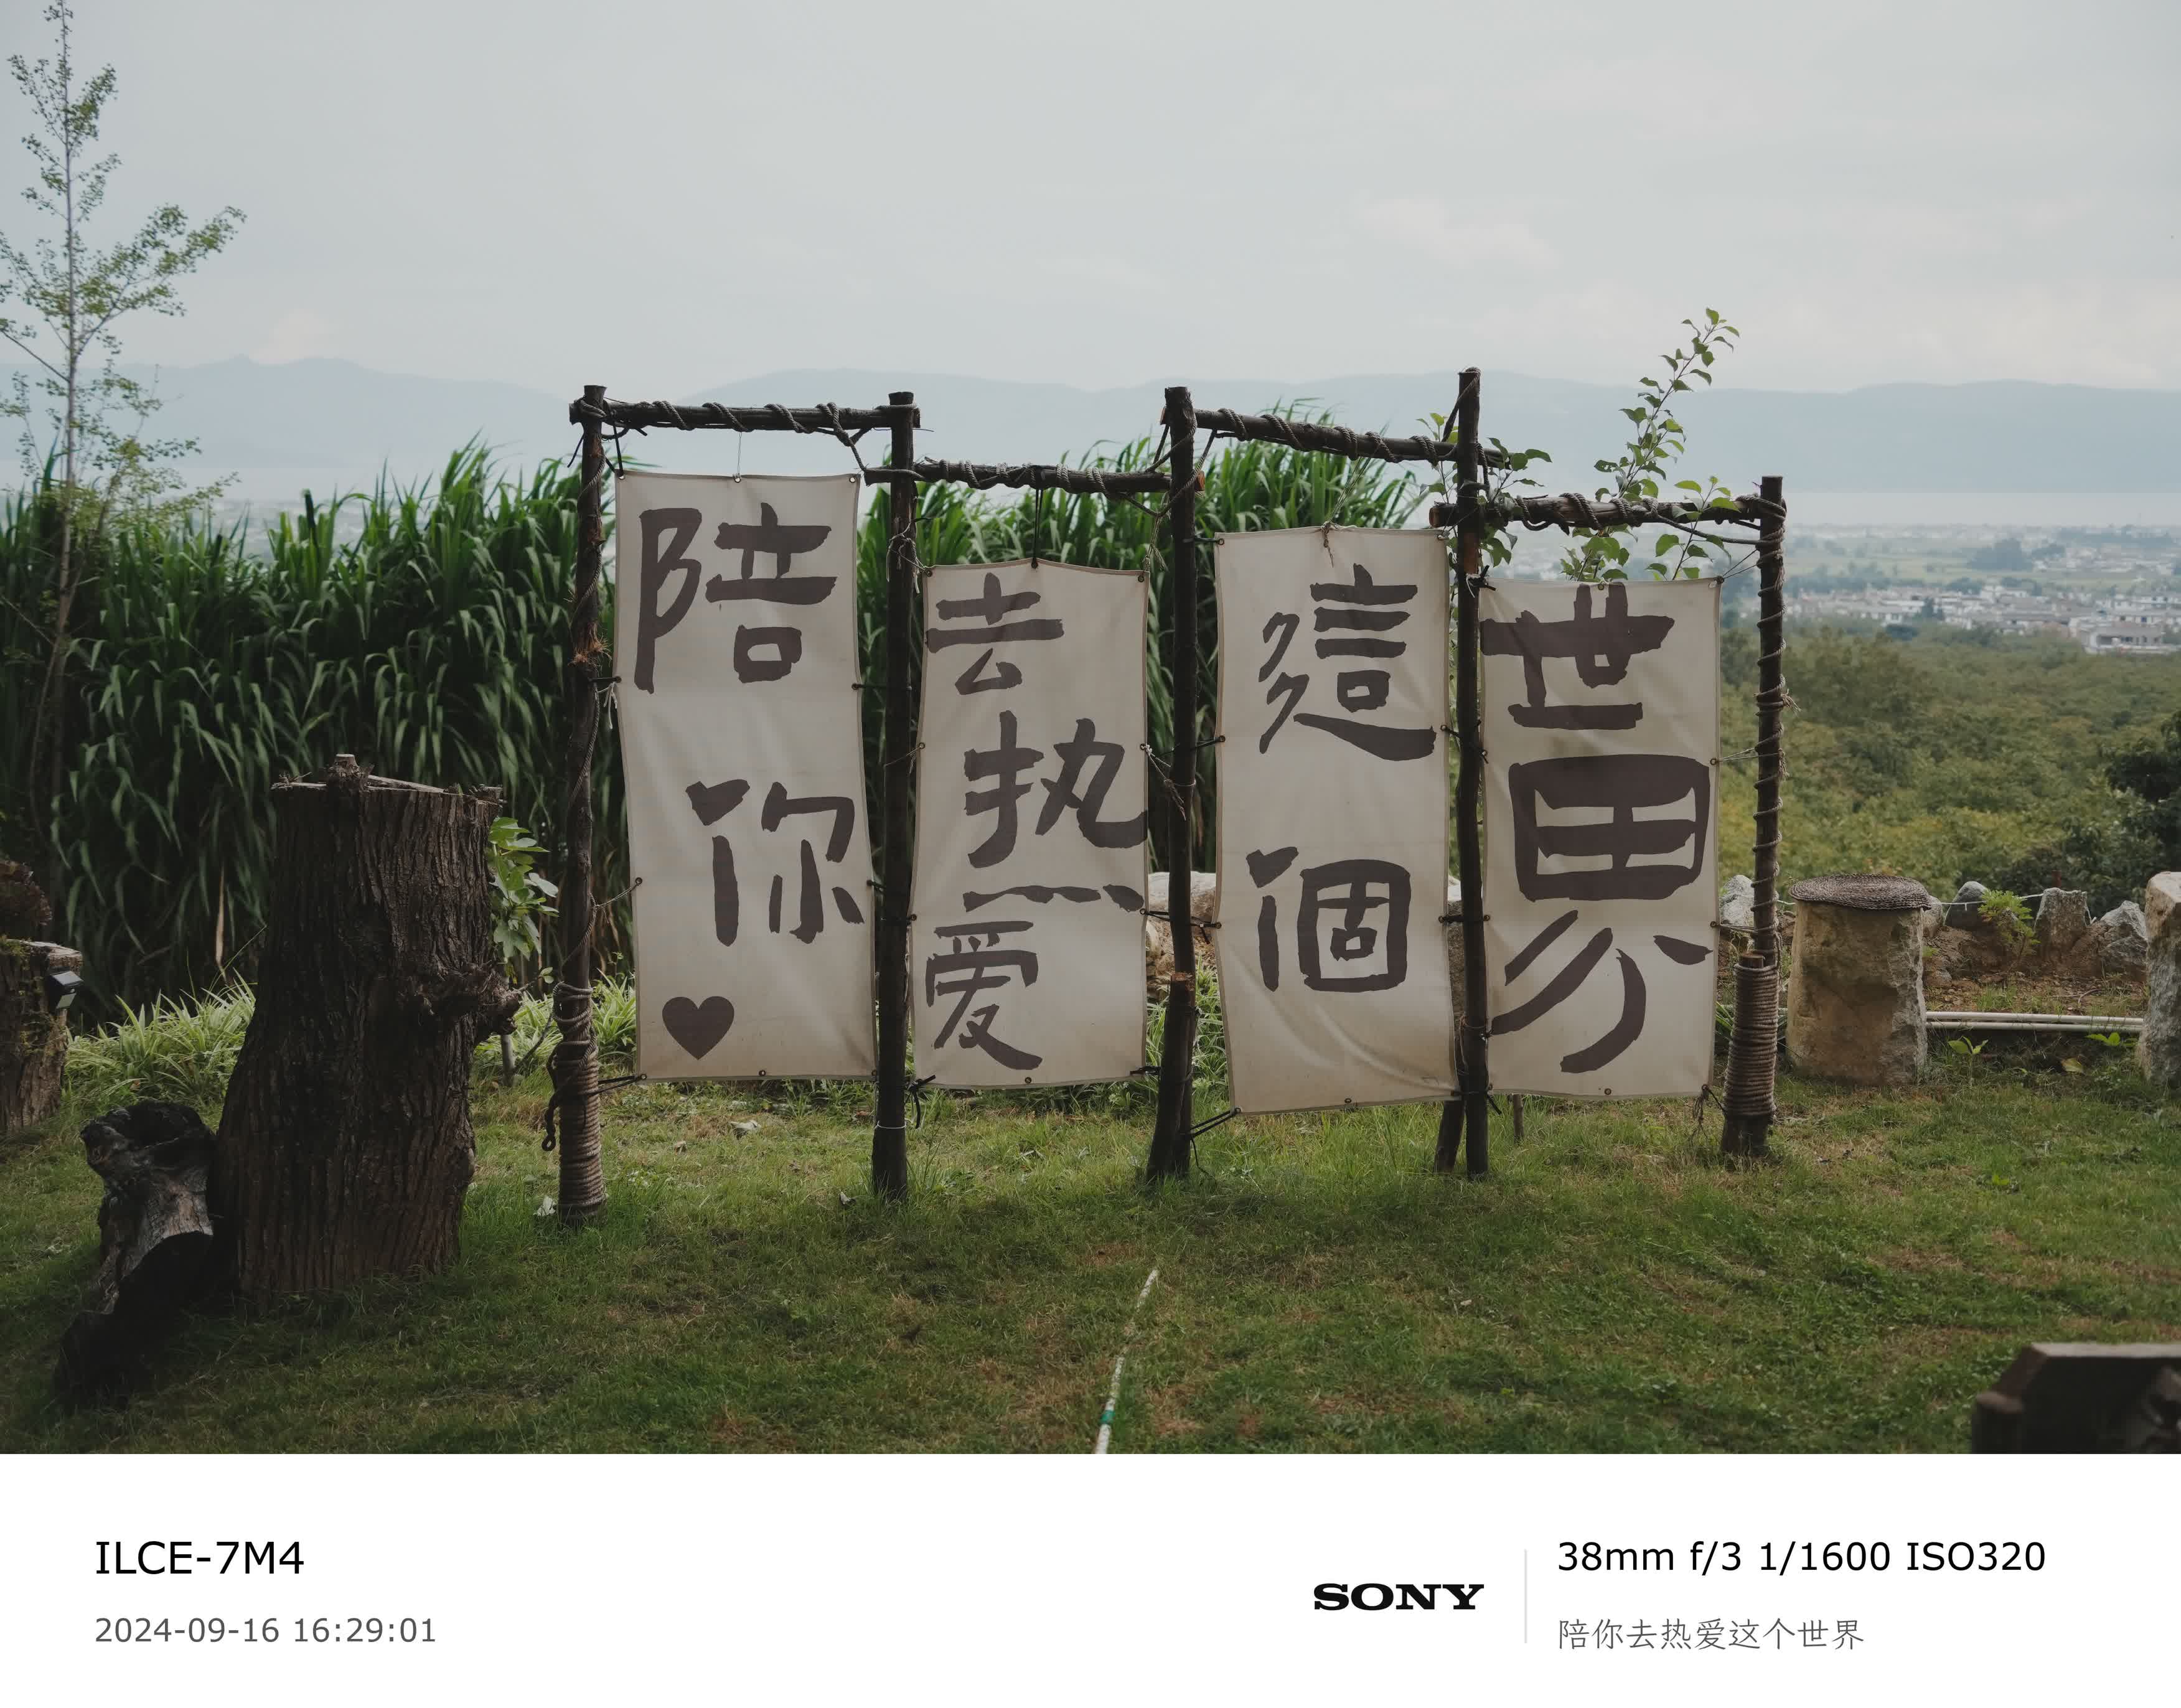 陪你
去热爱
這個
世界
ILCE-7M4
2024-09-16 16:29:01
SONY
38mm f/3 1/1600 ISO320
陪你去热爱这个世界